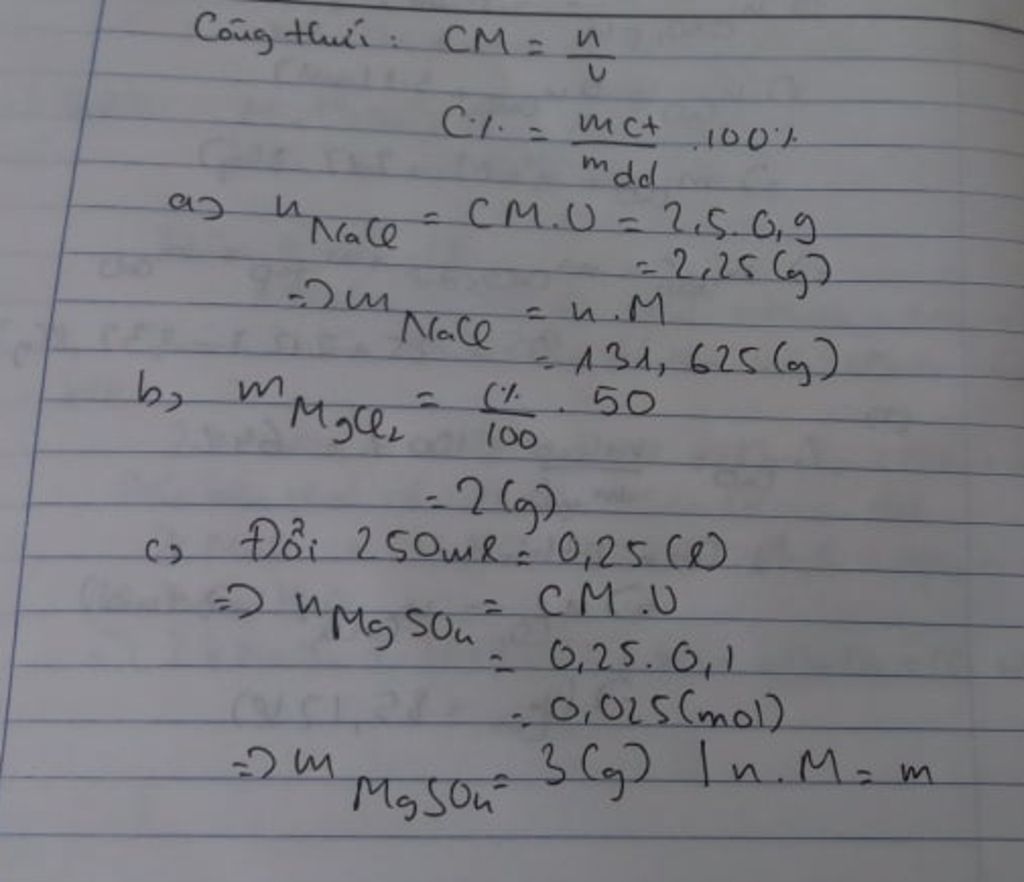 Công thức: CM = n/V
C% = mct/mdd .100%
a) n NaCl = CM.V = 2,5.0,9
= 2,25(g)
=> m NaCl = n.M
= 131,625(g)
b) m MgCl2 = C%/100 . 50
= 2(g)
c) Đổi 250ml = 0,25(l)
=> n MgSO4 = CM.V
= 0,25.0,1
= 0,025(mol)
=> m MgSO4 = 3(g) | n.M = m